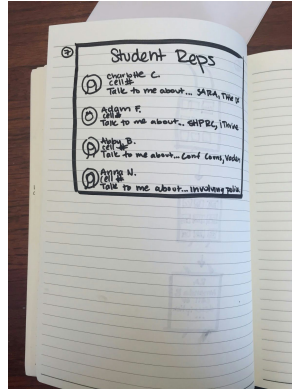 7
Student Reps
Charlotte C.
cell #
Talk to me about... SARA, Title IX
Adam F.
cell #
Talk to me about... SHPRC, iThrive
Abby B.
cell #
Talk to me about... Conf Coms, Vaden
Anna N.
cell #
Talk to me about... involving police